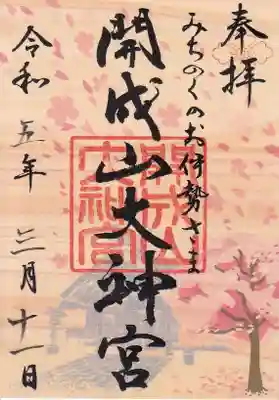 奉拝
みちのくのお伊勢さま
開成山大神宮
令和五年三月十一日
開成山大神宮